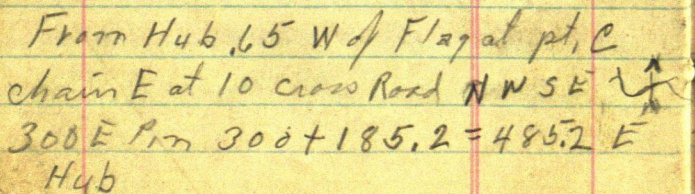 From Hub .65 W of Flag at pt. C
chain E at 10 cross Road N W S E
300 E Pin 300 + 185.2 = 485.2 E
Hub